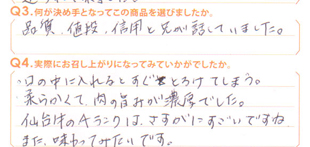 Q3.何が決め手となってこの商品を選びましたか。
品質、値段、信用と兄が話していました。
Q4.実際にお召し上がりになってみていかがでしたか。
口の中に入れるとすぐとろけてしまう。
柔らかくて、肉の旨みが濃厚でした。
仙台牛のAランクは、さすがにすごいですね
また、味わってみたいです。